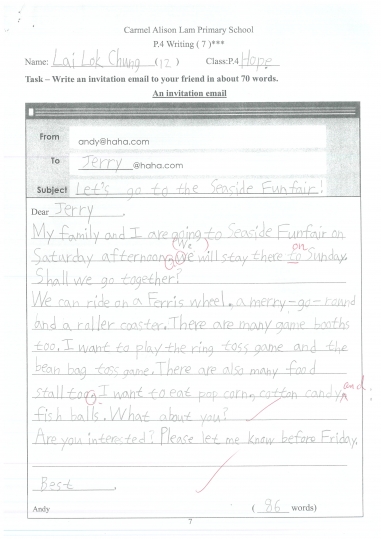 Carmel Alison Lam Primary School
P.4 Writing ( 7 )***
Name: Lai Lok Chung (12) Class:P.4 Hope
Task – Write an invitation email to your friend in about 70 words.
An invitation email
From andy@haha.com
To Jerry @haha.com
Subject Let's go to the Seaside Funfair!
Dear Jerry ,
My family and I are going to Seaside Funfair on
(We )
Saturday afternoon. We will stay there to Sunday.
on
Shall we go together?
We can ride on a Ferris wheel, a merry-go-round
and a roller coaster. There are many game booths
too. I want to play the ring toss game and the
bean bag toss game. There are also many food
stall too. I want to eat pop corn, cotton candy
and
fish balls. What about you?
Are you interested? Please let me know before Friday.
Best ,
Andy ( 86 words)
7